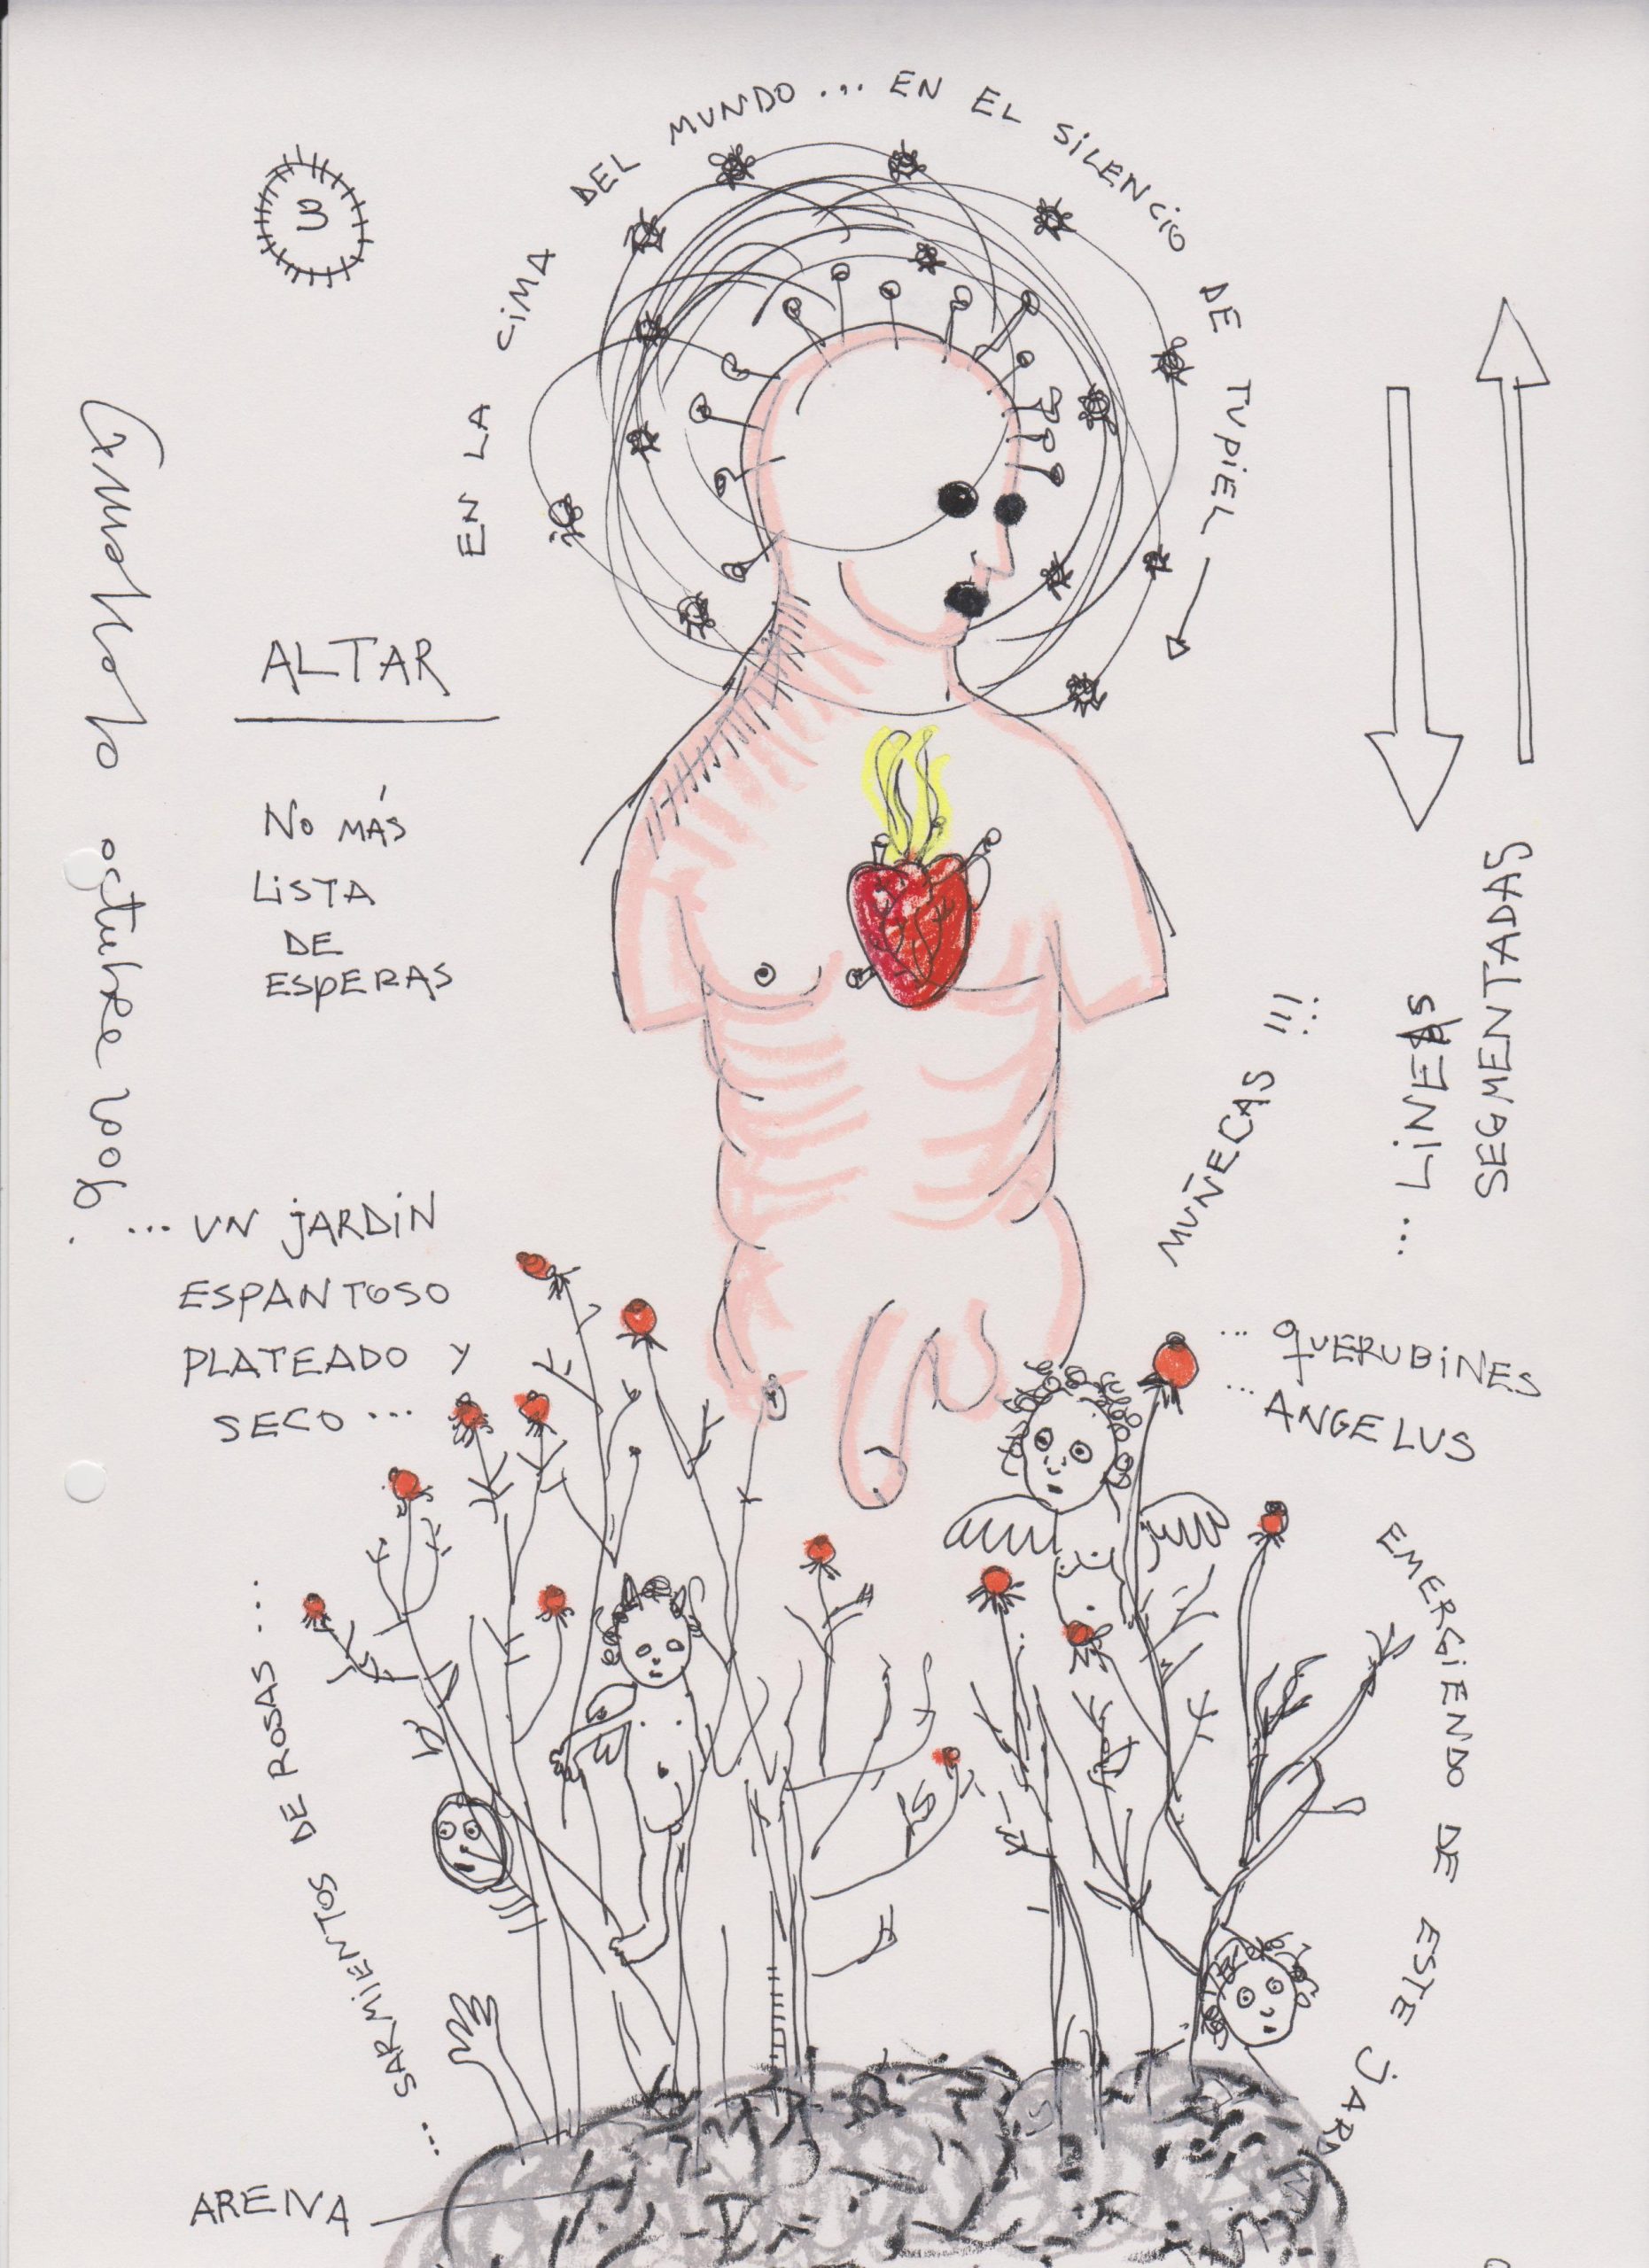 3
EN LA CIMA DEL MUNDO ... EN EL SILENCIO DE TU PIEL
ALTAR
NO MÁS
LISTA
DE
ESPERAS
octubre 2006.
MUÑECAS !!!
... LINEAS
SEGMENTADAS
... UN JARDIN
ESPANTOSO
PLATEADO Y
SECO ...
... QUERUBINES
... ANGELUS
... SARMIENTOS DE ROSAS ...
EMERGIENDO DE ESTE JARD
ARENA